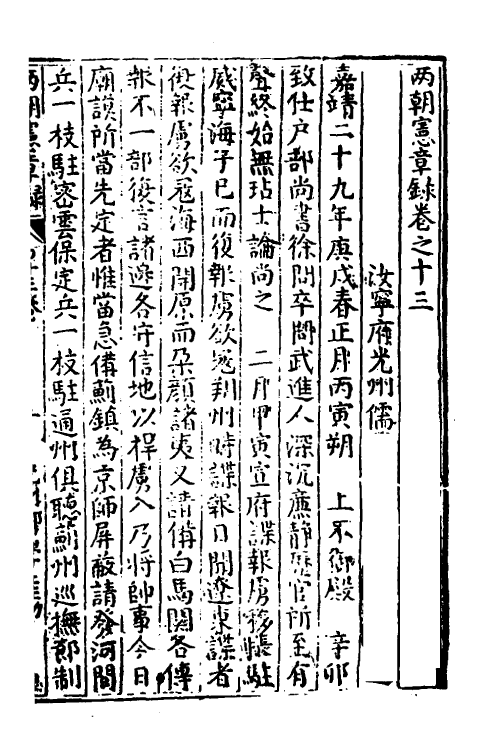 两朝憲章録卷之十三
汝寧府光州儒
嘉靖二十九年庚戌春正月丙寅朔　上不御殿　辛卯
致仕户部尚書徐問卒問武進人深沉廉静歷官所至有
聲終始無玷士論尚之　二月甲寅宣府諜報虜移帳駐
威寧海子已而復報虜欲寇荆州時諜報日聞遼東諜者
復報虜欲寇海西開原而朵顔諸夷又請備白馬関各傳
報不一部復言諸邊各守信地以捍虜入乃將帥事今日
廟謨所當先定者惟當急備薊鎮為京師屏蔽請發河間
兵一枝駐密雲保定兵一枝駐通州俱聽薊州巡撫節制
两朝憲章録